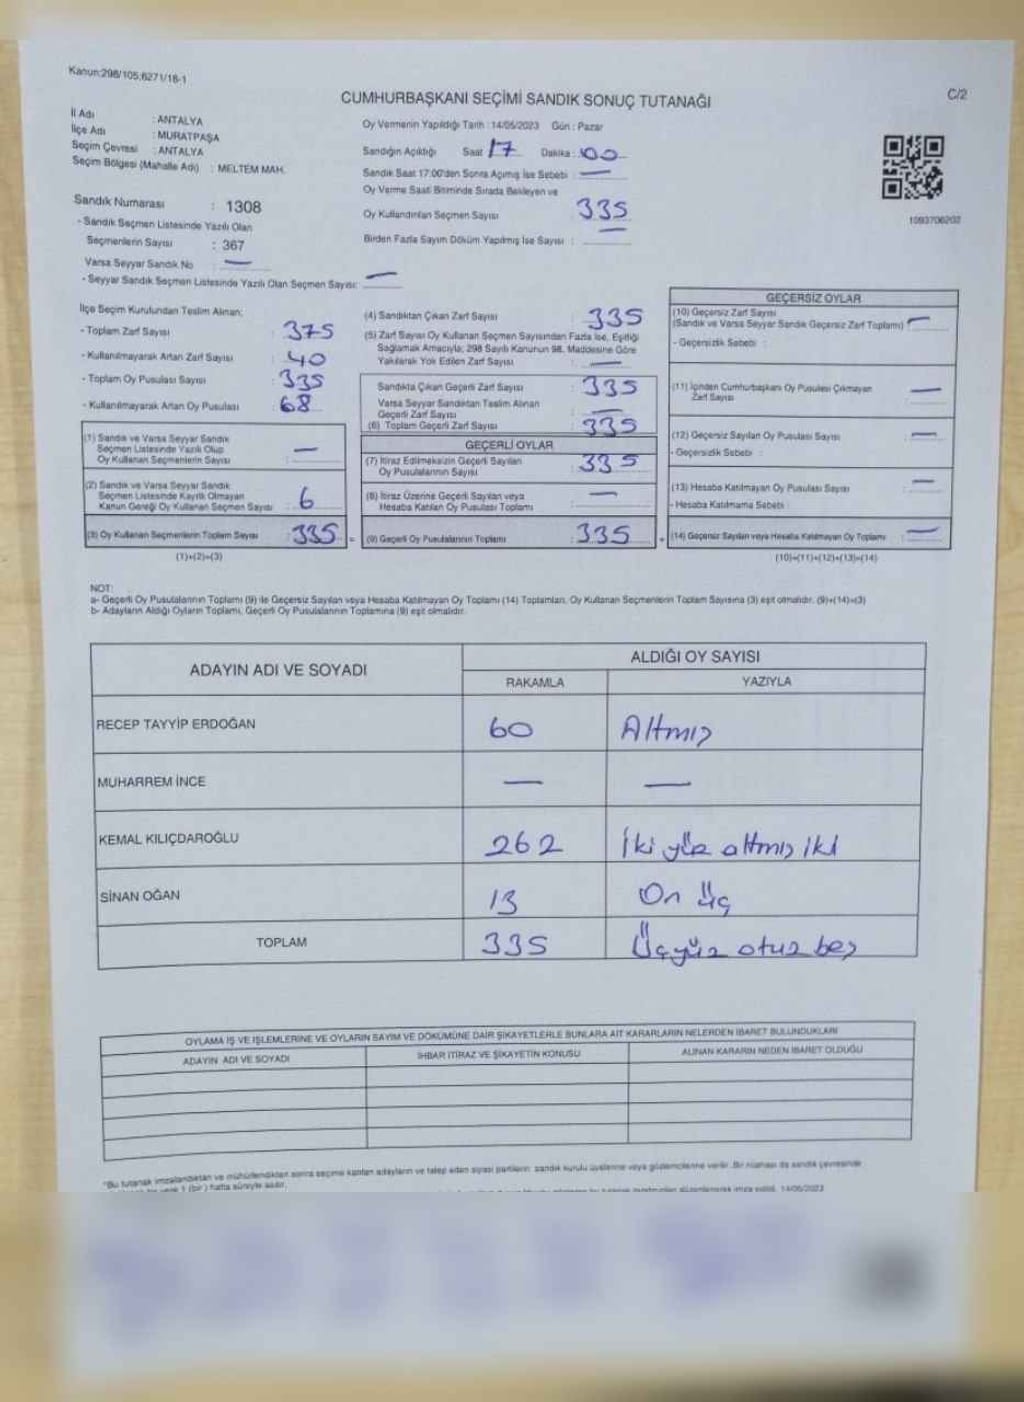 Kanun:298/105;6271/18-1
C/2
CUMHURBAŞKANI SEÇİMİ SANDIK SONUÇ TUTANAĞI
İl Adı : ANTALYA
İlçe Adı : MURATPAŞA
Seçim Çevresi : ANTALYA
Seçim Bölgesi (Mahalle Adı) : MELTEM MAH.
Sandık Numarası : 1308
- Sandık Seçmen Listesinde Yazılı Olan
Seçmenlerin Sayısı : 367
Varsa Seyyar Sandık No : —
- Seyyar Sandık Seçmen Listesinde Yazılı Olan Seçmen Sayısı: —
Oy Vermenin Yapıldığı Tarih : 14/05/2023 Gün : Pazar
Sandığın Açıldığı Saat : 17 Dakika : 00
Sandık Saat 17:00'den Sonra Açılmış İse Sebebi : —
Oy Verme Saati Bitiminde Sırada Bekleyen ve
Oy Kullandırılan Seçmen Sayısı : 335
Birden Fazla Sayım Döküm Yapılmış İse Sayısı : —
1093706202
İlçe Seçim Kurulundan Teslim Alınan;
- Toplam Zarf Sayısı : 375
- Kullanılmayarak Artan Zarf Sayısı : 40
- Toplam Oy Pusulası Sayısı : 335
- Kullanılmayarak Artan Oy Pusulası : 68
(1) Sandık ve Varsa Seyyar Sandık
Seçmen Listesinde Yazılı Olup
Oy Kullanan Seçmenlerin Sayısı : —
(2) Sandık ve Varsa Seyyar Sandık
Seçmen Listesinde Kayıtlı Olmayan
Kanun Gereği Oy Kullanan Seçmen Sayısı : 6
(3) Oy Kullanan Seçmenlerin Toplam Sayısı : 335
(1)+(2)=(3)
(4) Sandıktan Çıkan Zarf Sayısı : 335
(5) Zarf Sayısı Oy Kullanan Seçmen Sayısından Fazla İse, Eşitliği
Sağlamak Amacıyla; 298 Sayılı Kanunun 98. Maddesine Göre
Yakılarak Yok Edilen Zarf Sayısı : —
Sandıkta Çıkan Geçerli Zarf Sayısı : 335
Varsa Seyyar Sandıktan Teslim Alınan
Geçerli Zarf Sayısı : —
(6) Toplam Geçerli Zarf Sayısı : 335
GEÇERLİ OYLAR
(7) İtiraz Edilmeksizin Geçerli Sayılan
Oy Pusulalarının Sayısı : 335
(8) İtiraz Üzerine Geçerli Sayılan veya
Hesaba Katılan Oy Pusulası Toplamı : —
= (9) Geçerli Oy Pusulalarının Toplamı : 335
GEÇERSİZ OYLAR
(10) Geçersiz Zarf Sayısı
(Sandık ve Varsa Seyyar Sandık Geçersiz Zarf Toplamı) : —
- Geçersizlik Sebebi :
(11) İçinden Cumhurbaşkanı Oy Pusulası Çıkmayan
Zarf Sayısı : —
(12) Geçersiz Sayılan Oy Pusulası Sayısı : —
- Geçersizlik Sebebi :
(13) Hesaba Katılmayan Oy Pusulası Sayısı : —
- Hesaba Katılmama Sebebi :
+ (14) Geçersiz Sayılan veya Hesaba Katılmayan Oy Toplamı : —
(10)+(11)+(12)+(13)=(14)
NOT:
a- Geçerli Oy Pusulalarının Toplamı (9) ile Geçersiz Sayılan veya Hesaba Katılmayan Oy Toplamı (14) Toplamları, Oy Kullanan Seçmenlerin Toplam Sayısına (3) eşit olmalıdır. (9)+(14)=(3)
b- Adayların Aldığı Oyların Toplamı, Geçerli Oy Pusulalarının Toplamına (9) eşit olmalıdır.
ADAYIN ADI VE SOYADI ALDIĞI OY SAYISI
RAKAMLA YAZIYLA
RECEP TAYYİP ERDOĞAN 60 Altmış
MUHARREM İNCE — —
KEMAL KILIÇDAROĞLU 262 İki yüz altmış iki
SİNAN OĞAN 13 On üç
TOPLAM 335 Üçyüz otuz beş
OYLAMA İŞ VE İŞLEMLERİNE VE OYLARIN SAYIM VE DÖKÜMÜNE DAİR ŞİKAYETLERLE BUNLARA AİT KARARLARIN NELERDEN İBARET BULUNDUKLARI
ADAYIN ADI VE SOYADI İHBAR İTİRAZ VE ŞİKAYETİN KONUSU ALINAN KARARIN NEDEN İBARET OLDUĞU
*Bu tutanak imzalandıktan ve mühürlendikten sonra seçime katılan adayların ve talep eden siyasi partilerin sandık kurulu üyelerine veya gözlemcilerine verilir. Bir nüshası da sandık çevresinde
1 (bir) hafta süreyle asılır.
14/05/2023